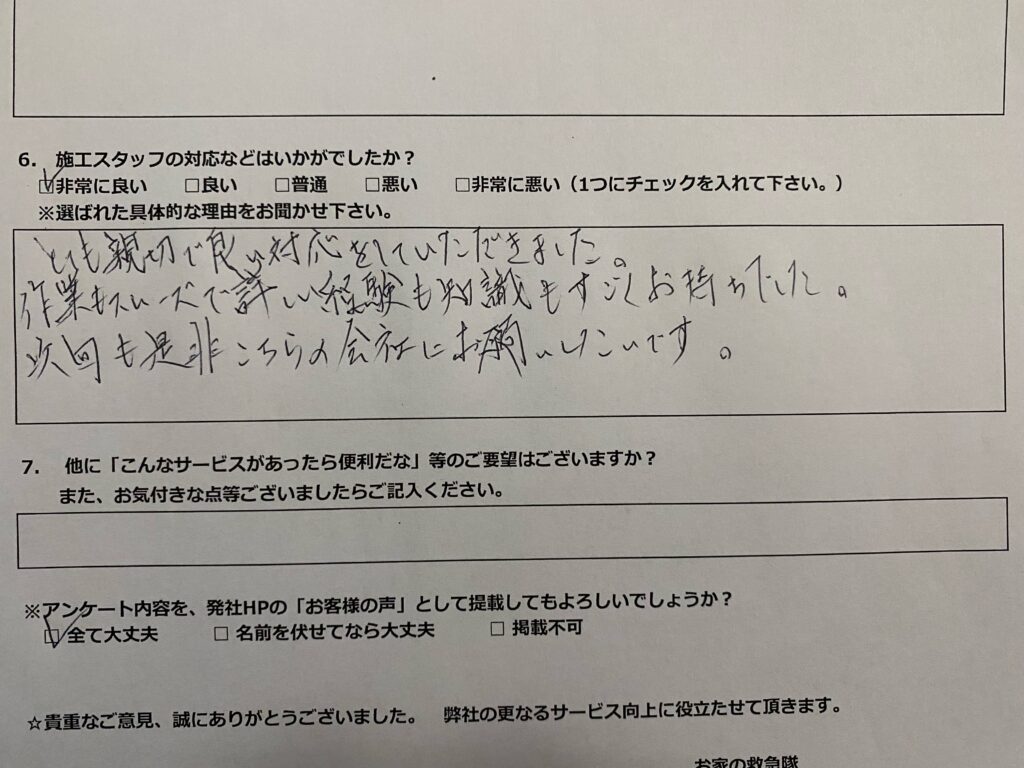 6. 施工スタッフの対応などはいかがでしたか？
☑非常に良い □良い □普通 □悪い □非常に悪い（1つにチェックを入れて下さい。）
※選ばれた具体的な理由をお聞かせ下さい。
とても親切で良い対応をしていただきました。
作業もスムーズで詳しい経験も知識もすごくお持ちでした。
次回も是非こちらの会社にお願いしたいです。
7. 他に「こんなサービスがあったら便利だな」等のご要望はございますか？
また、お気付きな点等ございましたらご記入ください。
※アンケート内容を、発社HPの「お客様の声」として提載してもよろしいでしょうか？
☑ 全て大丈夫 □ 名前を伏せてなら大丈夫 □ 掲載不可
☆貴重なご意見、誠にありがとうございました。 弊社の更なるサービス向上に役立たせて頂きます。
お家の救急隊